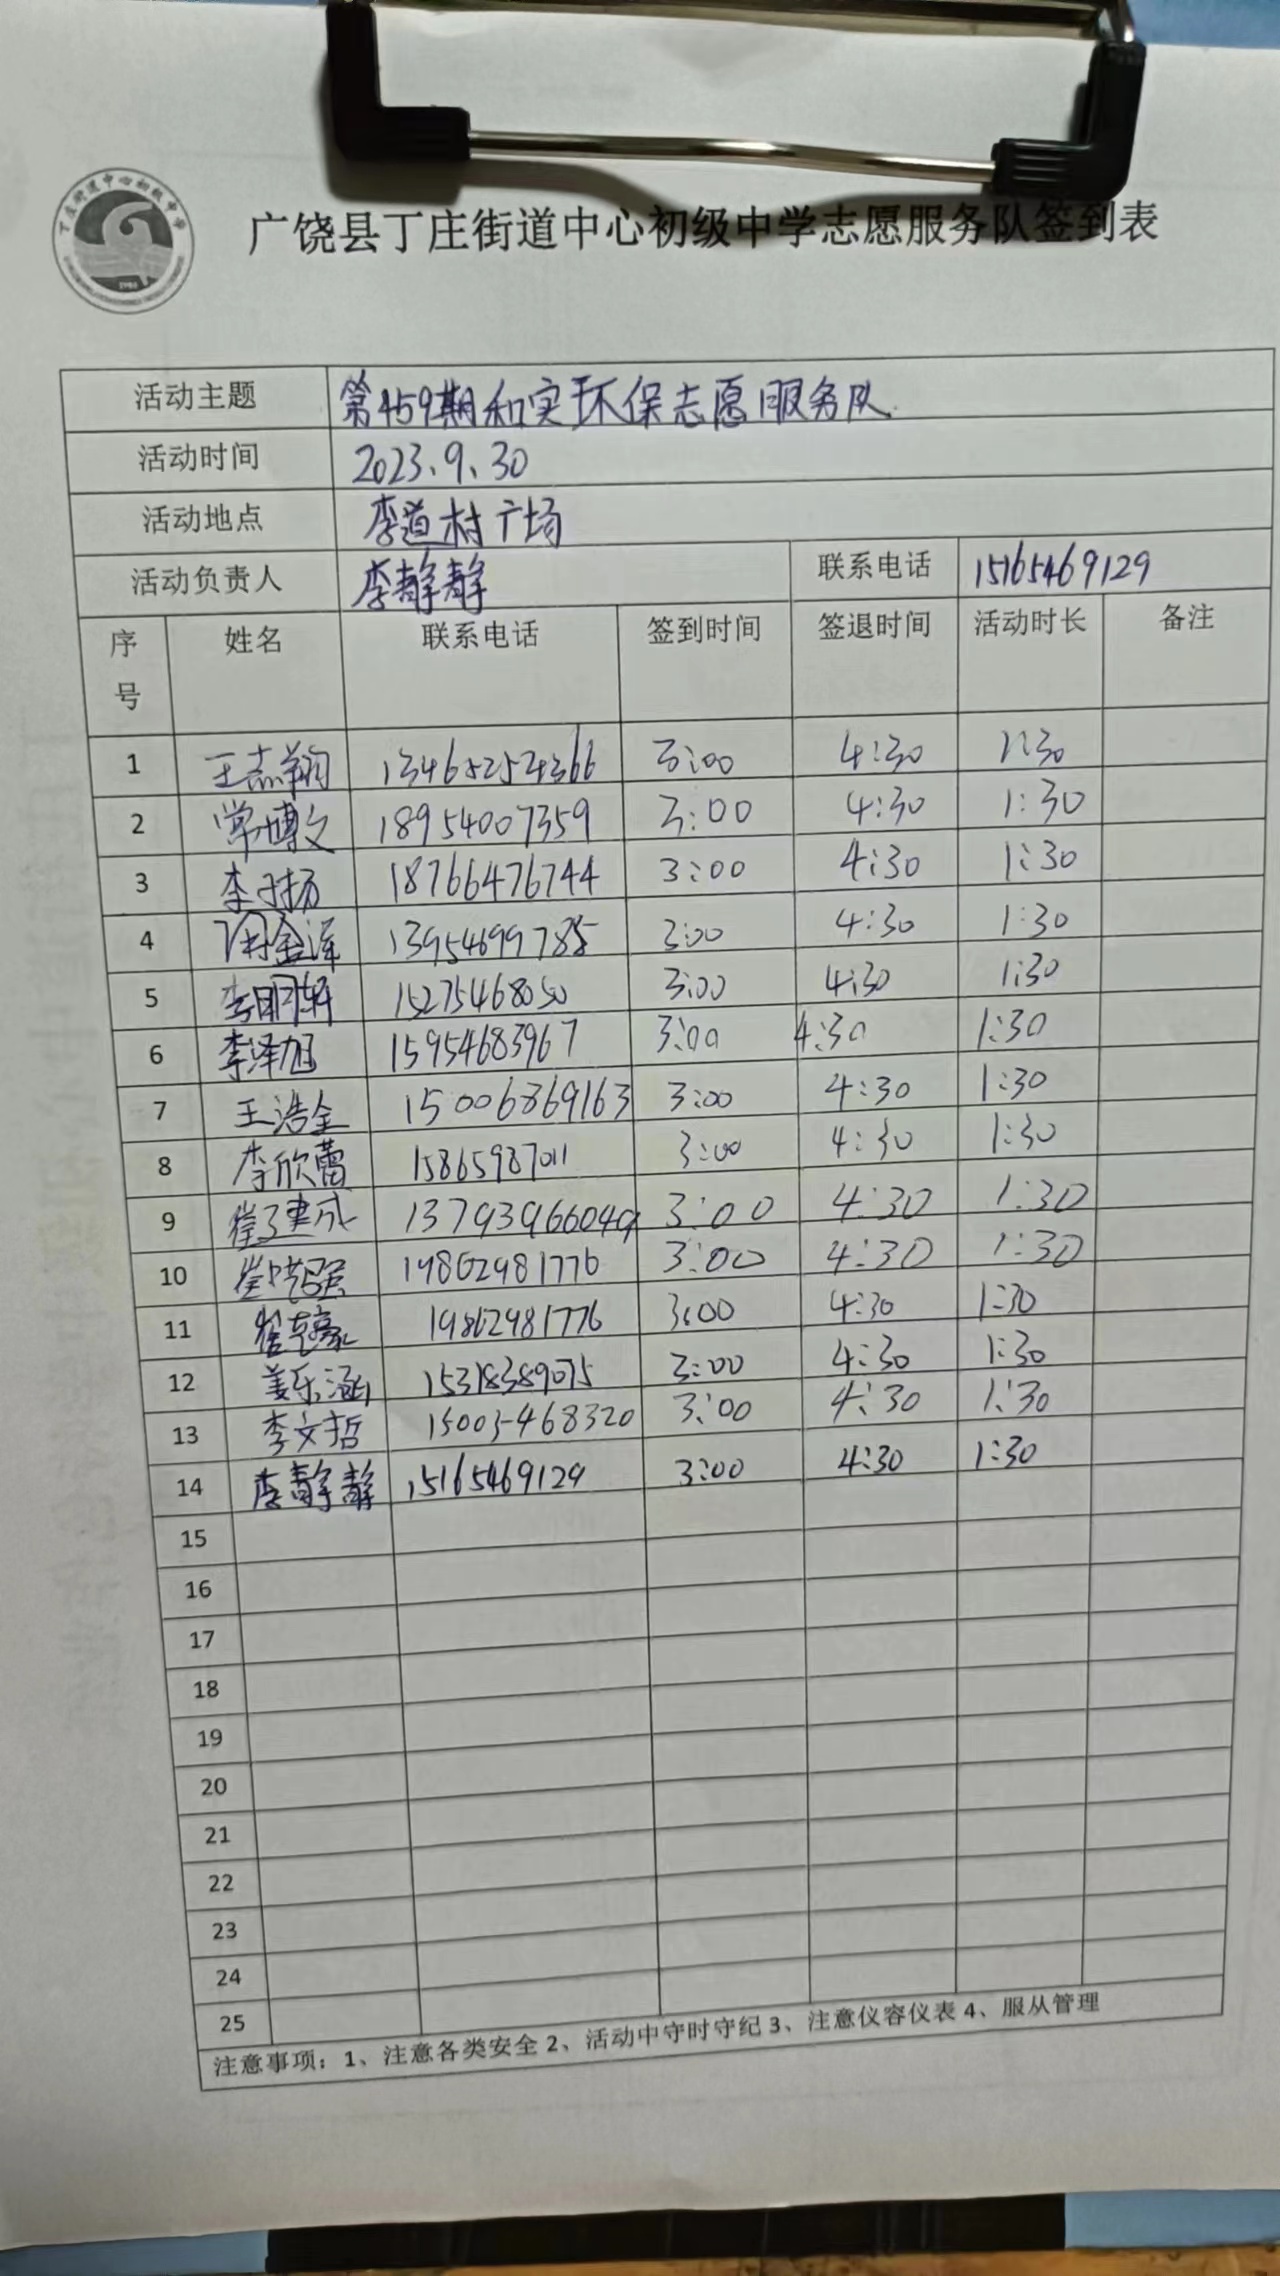 丁庄街道中心初级中学
广饶县丁庄街道中心初级中学志愿服务队签到表
活动主题 第459期和实环保志愿服务队
活动时间 2023.9.30
活动地点 李道村广场
活动负责人 李静静 联系电话 15165469129
序号 姓名 联系电话 签到时间 签退时间 活动时长 备注
1 王志翔 3:00 4:30 1:30
2 常博文 18954007359 3:00 4:30 1:30
3 李子扬 18766476744 3:00 4:30 1:30
4 3:00 4:30 1:30
5 李明轩 15275468050 3:00 4:30 1:30
6 李泽旭 15954683967 3:00 4:30 1:30
7 王浩全 15006869163 3:00 4:30 1:30
8 李欣蕾 15865987011 3:00 4:30 1:30
9 13793966049 3:00 4:30 1:30
10 19862981776 3:00 4:30 1:30
11 19862981776 3:00 4:30 1:30
12 姜乐涵 15318389075 3:00 4:30 1:30
13 李文哲 15005468320 3:00 4:30 1:30
14 李静静 15165469129 3:00 4:30 1:30
15
16
17
18
19
20
21
22
23
24
25
注意事项：1、注意各类安全 2、活动中守时守纪 3、注意仪容仪表 4、服从管理